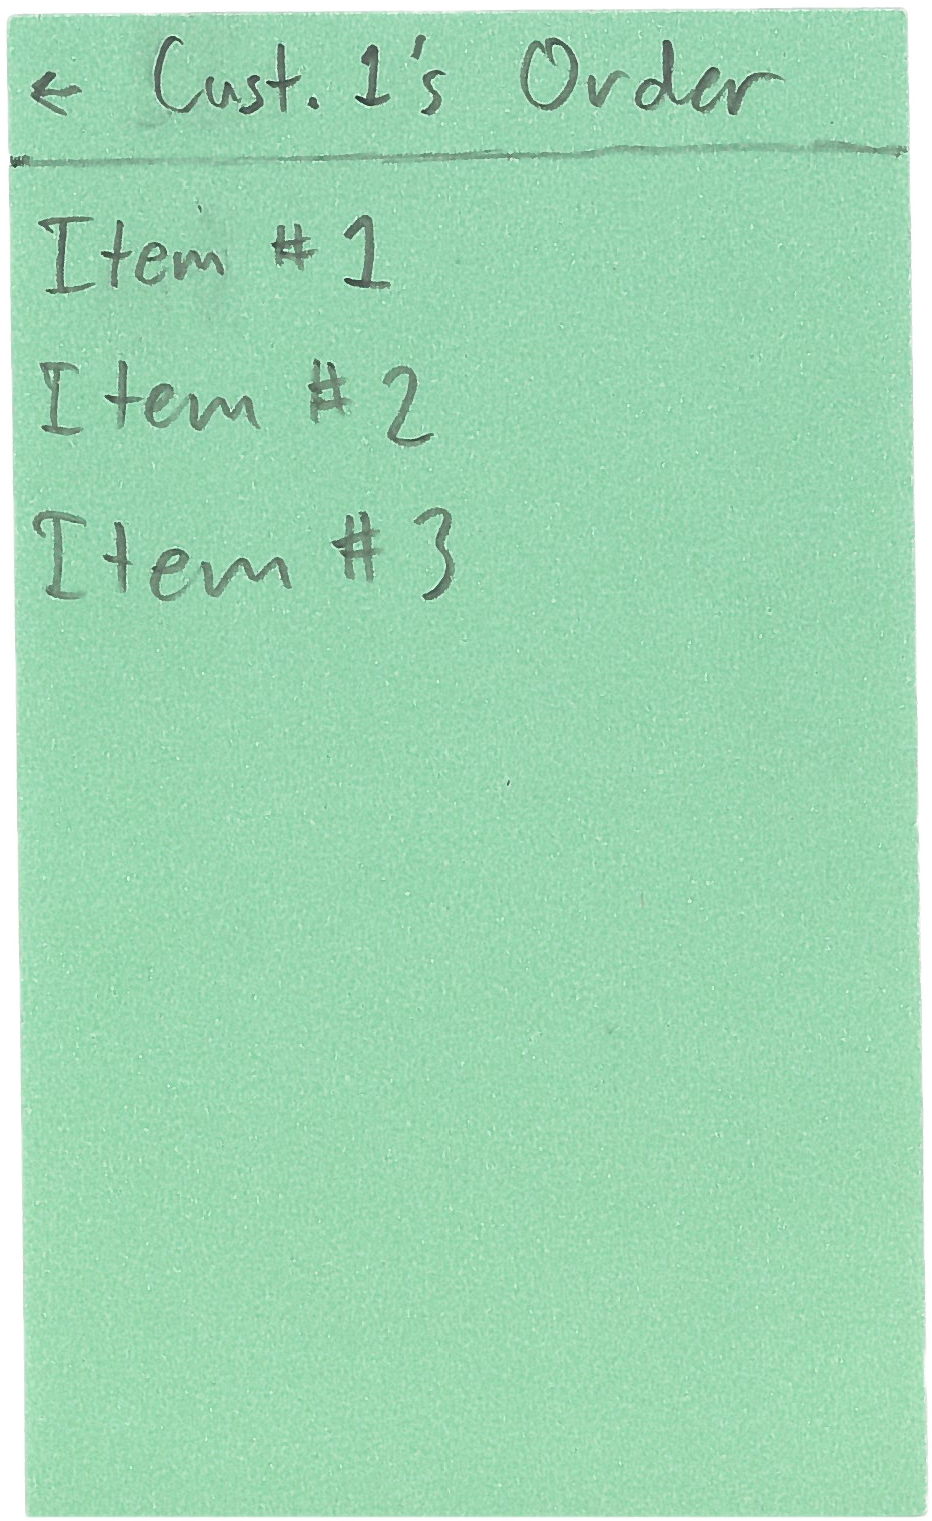 ← Cust. 1's Order
Item # 1
Item # 2
Item # 3